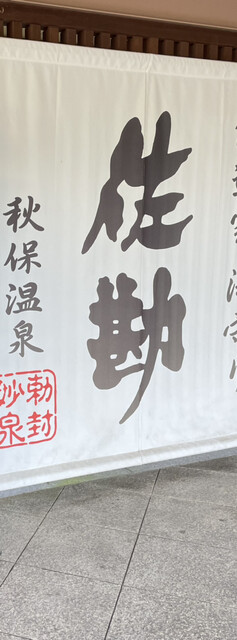 佐勘
秋保温泉
勅封
泉